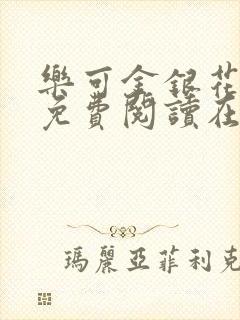 樂可金銀花
免費閱讀在
瑪麗亞菲利克